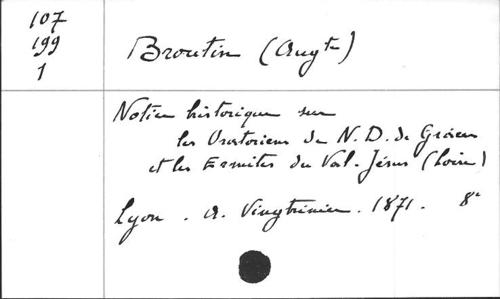 107
199
1
Broutin (Augte)
Notice historique sur
les Oratoriens de N. D. de Grâces
et les Ermites du Val-Jésus (Loire)
Lyon. A. Vingtrinier. 1871. 8°